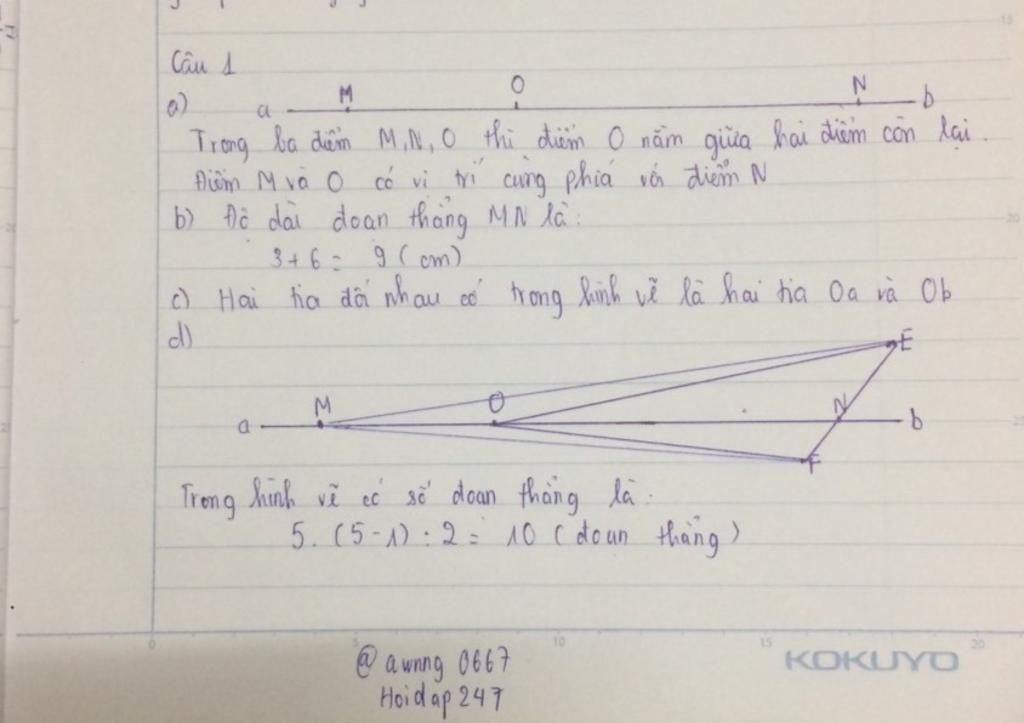 Câu 1
a) a M O N b
Trong ba điểm M, N, O thì điểm O nằm giữa hai điểm còn lại.
Điểm M và O có vị trí cùng phía với điểm N
b) Độ dài đoạn thẳng MN là:
3+6 = 9 (cm)
c) Hai tia đối nhau có trong hình vẽ là hai tia Oa và Ob
d)
E
a M O N b
F
Trong hình vẽ có số đoạn thẳng là:
5. (5-1) : 2 = 10 (đoạn thẳng)
@ awnng 0667
Hoidap 247
KOKUYO
0 5 10 15 20